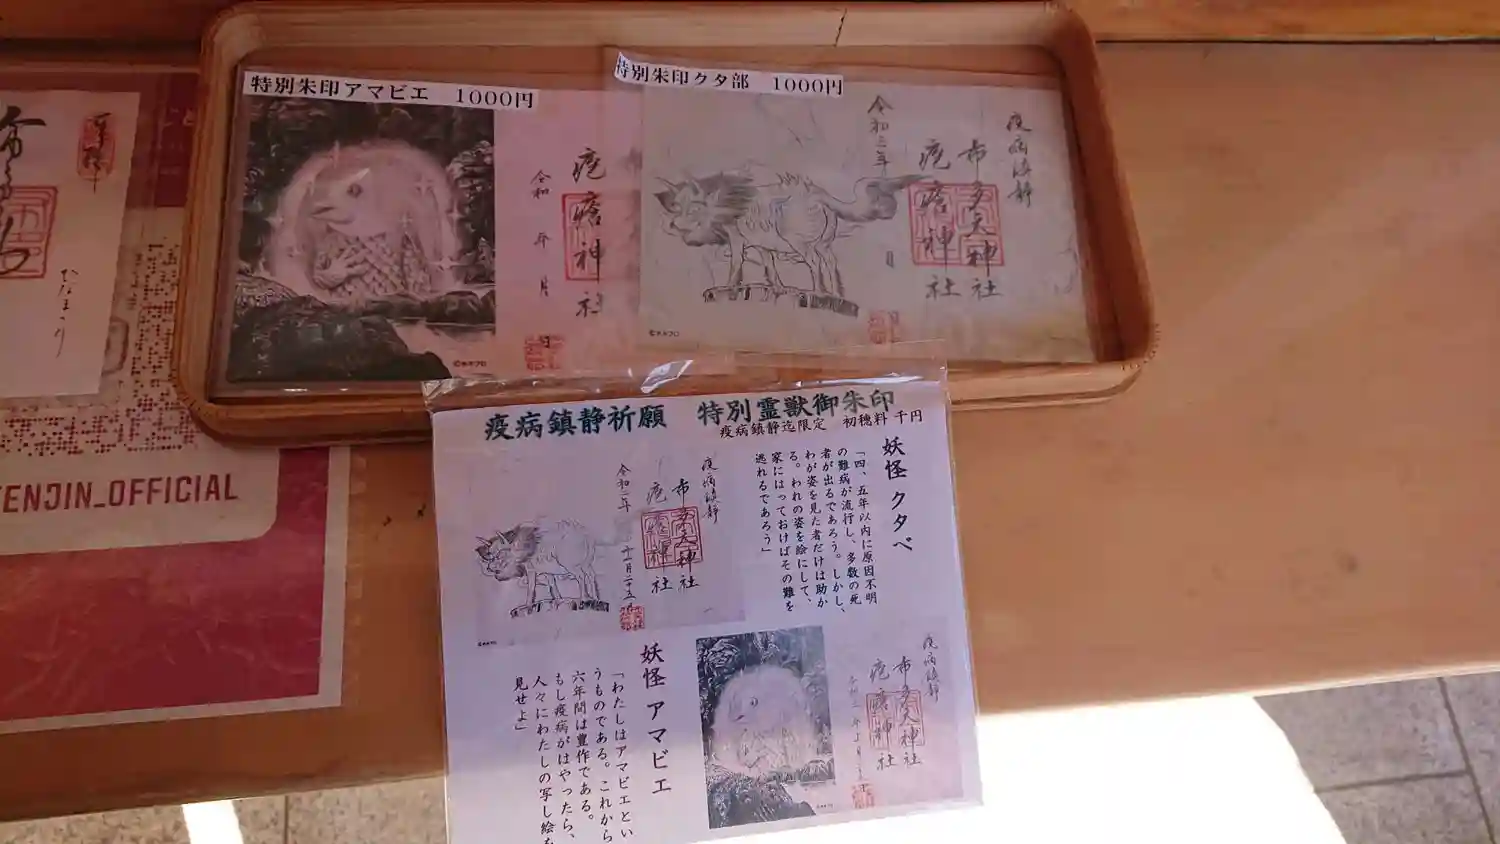 特別朱印アマビエ 1000円
特別朱印クタ部 1000円
令和 年 月
疱瘡神社
©水木プロ
疫病鎮静
市多天神社
疱瘡神社
令和三年
月
©水木プロ
ENJIN_OFFICIAL
疫病鎮静祈願 特別霊獣御朱印
疫病鎮静迄限定 初穂料 千円
妖怪 クタベ
「四、五年以内に原因不明
の難病が流行し、多数の死
者が出るであろう。しかし、
わが姿を見た者だけは助か
る。われの姿を絵にして、
家にはっておけばその難を
逃れるであろう」
疫病鎮静
市多天神社
疱瘡神社
令和二年
妖怪 アマビエ
「わたしはアマビエとい
うものである。これから
六年間は豊作である。
もし疫病がはやったら、
人々にわたしの写し絵を
見せよ」
疫病鎮静
市多天神社
疱瘡神社